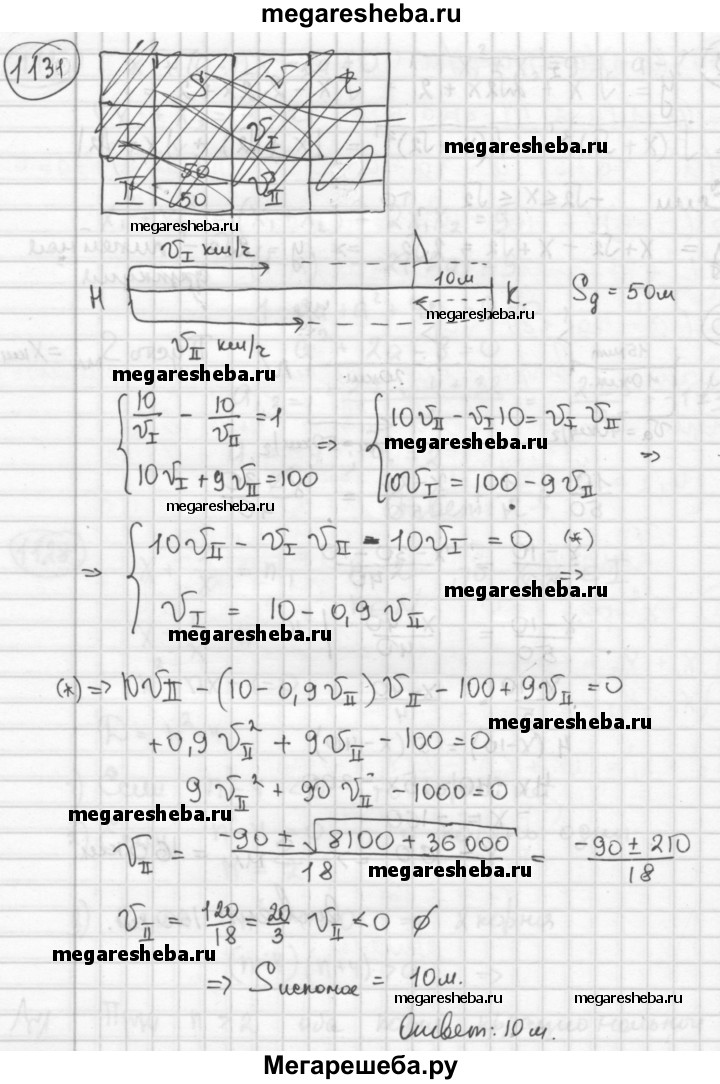 megaresheba.ru
1131
S V t
I V_I
megaresheba.ru
50
II 50 V_II
megaresheba.ru
V_I км/г
10м
Н К. S_g = 50м
megaresheba.ru
V_II км/г
megaresheba.ru
{ 10/V_I − 10/V_II = 1 => { 10V_II − V_I 10 = V_I V_II
megaresheba.ru
10V_I + 9V_II = 100 10V_I = 100 − 9V_II =>
megaresheba.ru
=> { 10V_II − V_I V_II − 10V_I = 0 (*)
=>
megaresheba.ru
V_I = 10 − 0,9 V_II
megaresheba.ru
(*) => 10V_II − (10 − 0,9V_II) V_II − 100 + 9V_II = 0
megaresheba.ru
+0,9 V_II² + 9V_II − 100 = 0
9 V_II² + 90 V_II − 1000 = 0
megaresheba.ru
V_II = (−90 ± √(8100 + 36000))/18 = (−90 ± 210)/18
megaresheba.ru
V_II = 120/18 = 20/3 V_II < 0 ∅
megaresheba.ru
=> S искомое = 10м.
megaresheba.ru megaresheba.ru
Ответ: 10 м.
Мегарешеба.ру